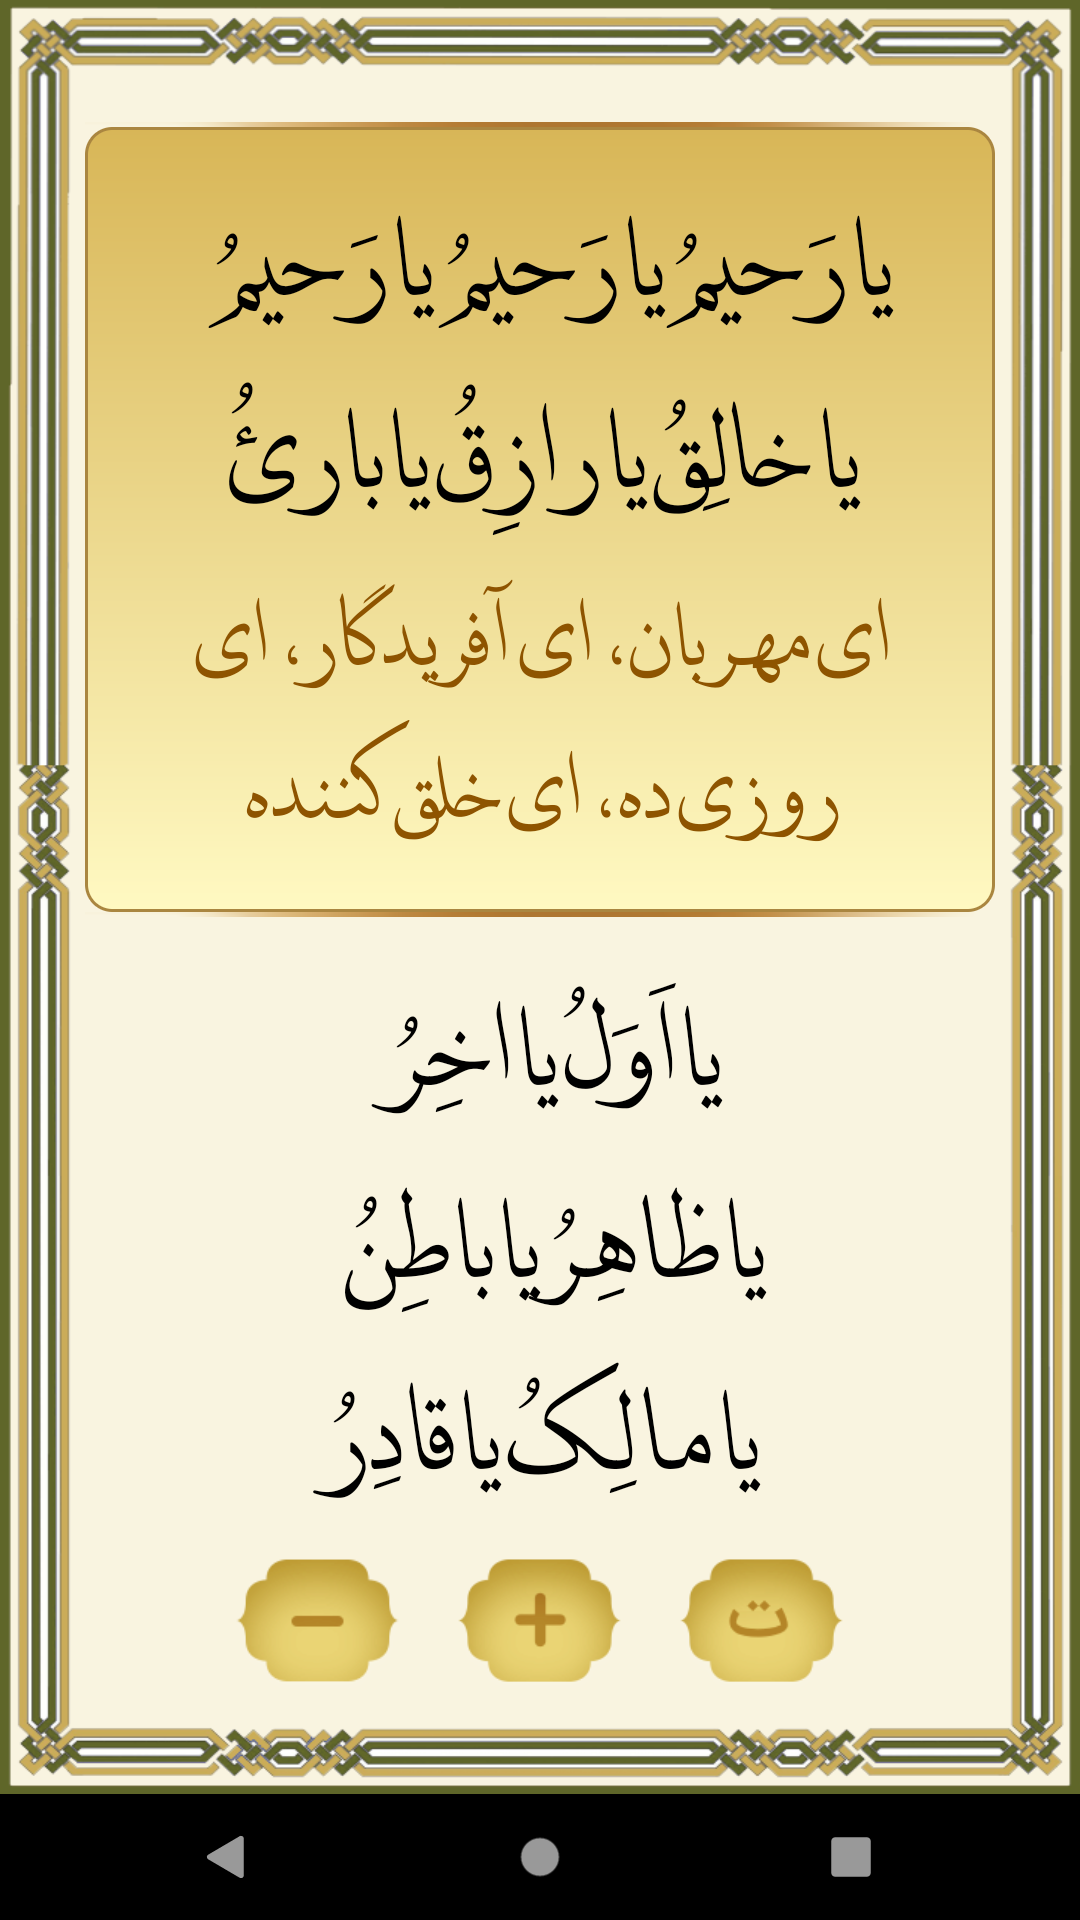 یا رَحیمُ یا رَحیمُ یا رَحیمُ
یا خالِقُ یا رازِقُ یا بارئُ
ای مهربان، ای آفریدگار، ای
روزی ده، ای خلق کننده
یا اَوَلُ یا اخِرُ
یا ظاهِرُ یا باطِنُ
یا مالِکُ یا قادِرُ
− + ت